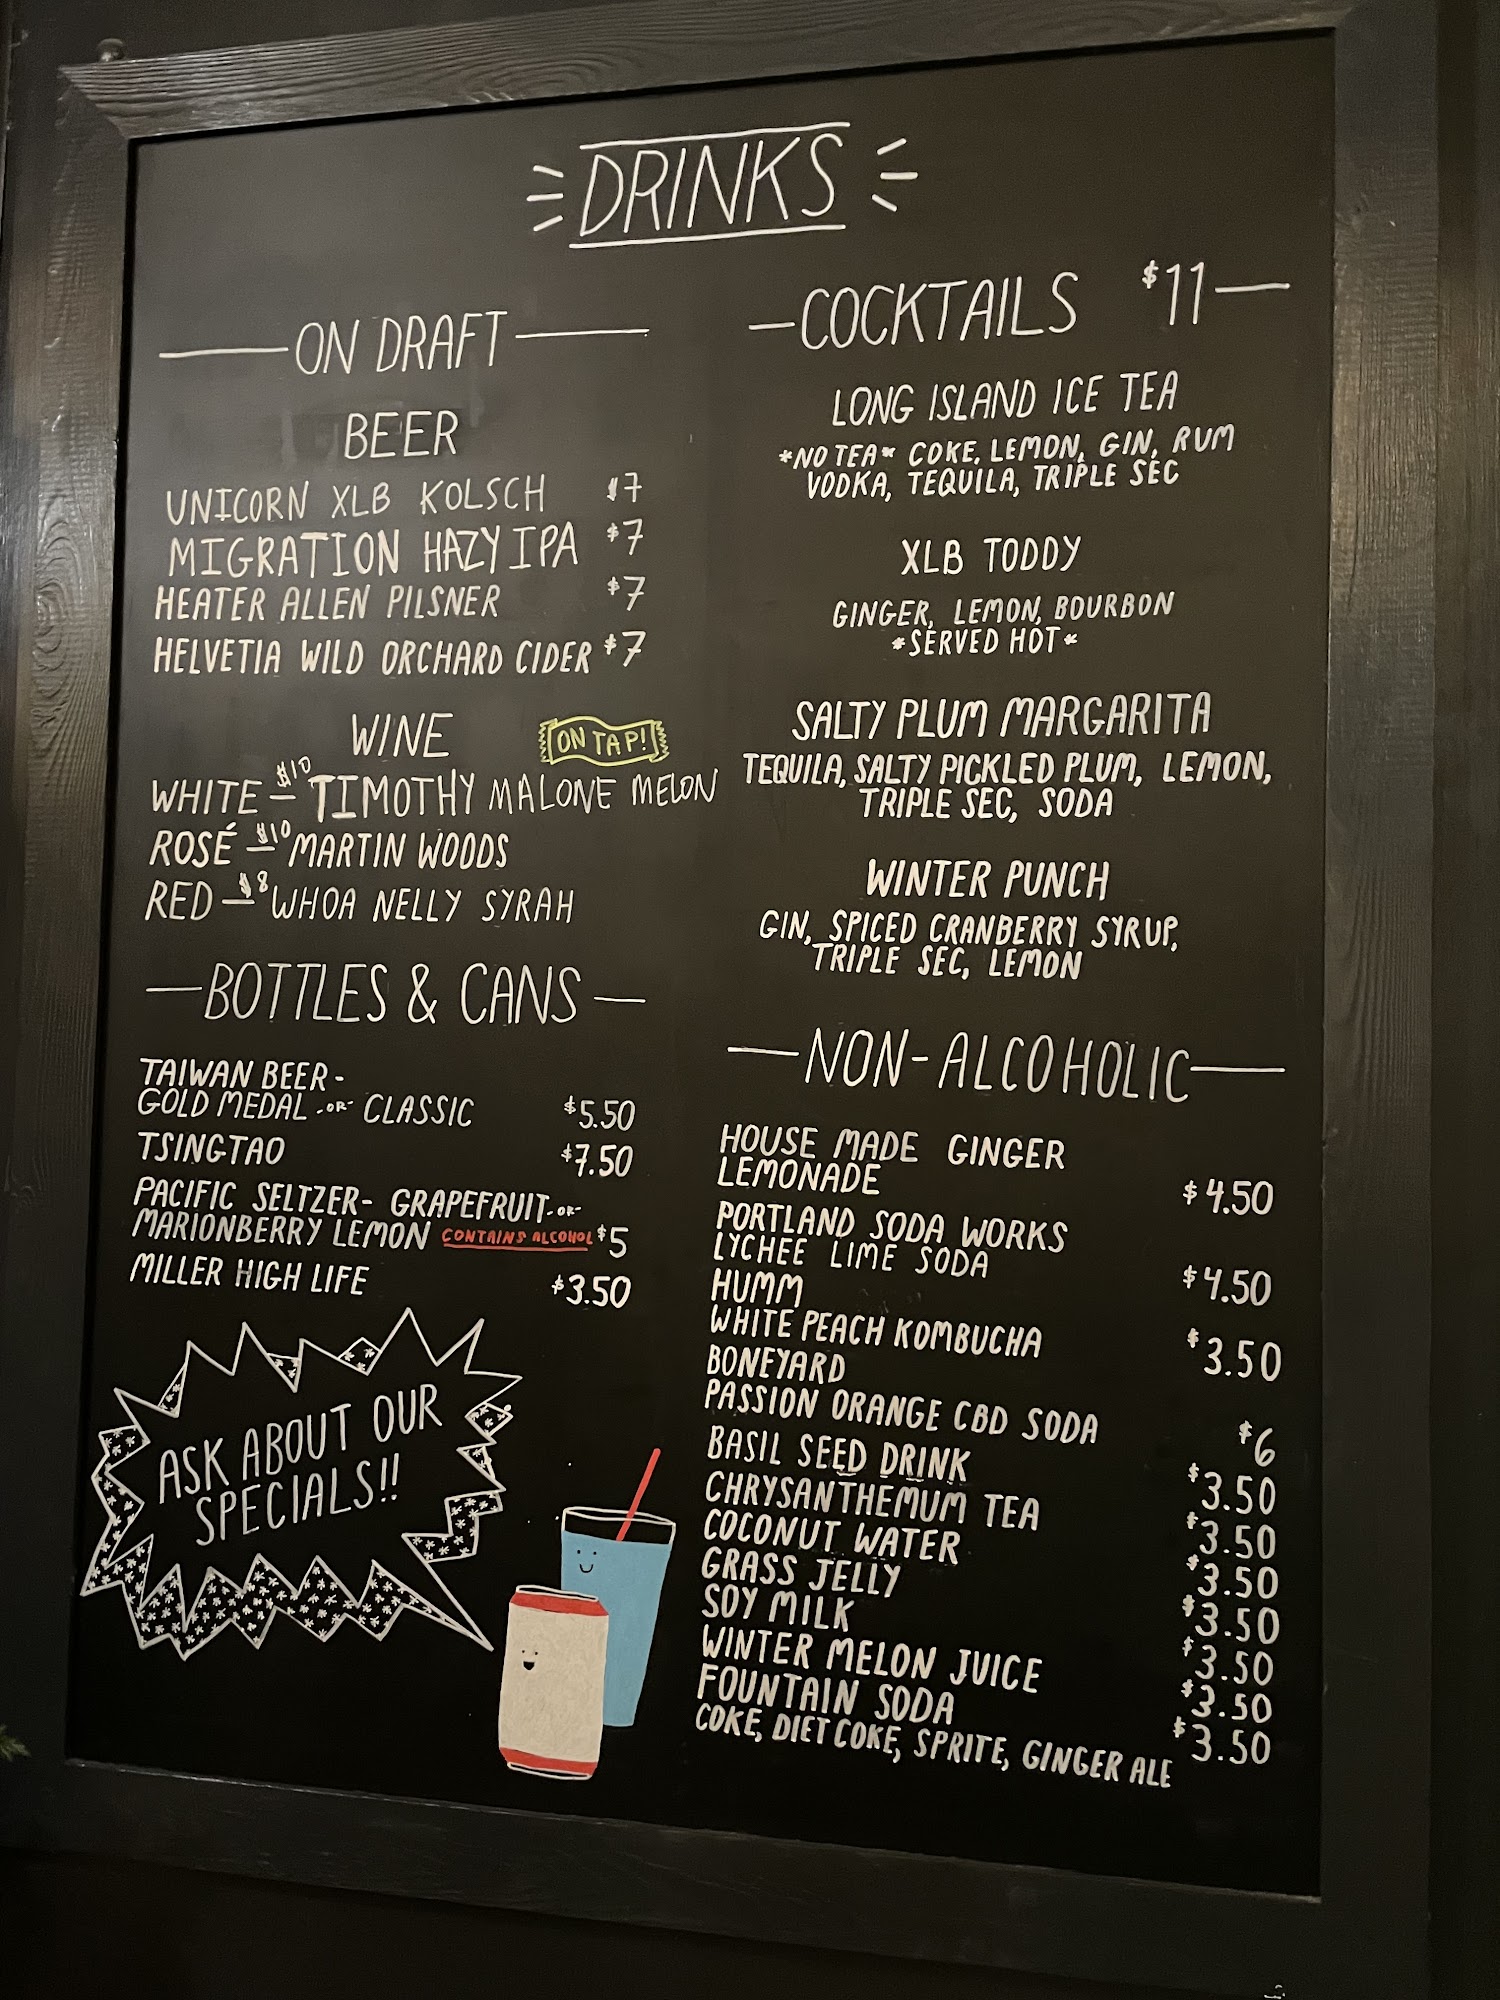 DRINKS
ON DRAFT
BEER
UNICORN XLB KOLSCH $7
MIGRATION HAZY IPA $7
HEATER ALLEN PILSNER $7
HELVETIA WILD ORCHARD CIDER $7
WINE ON TAP!
WHITE - $10 TIMOTHY MALONE MELON
ROSÉ - $10 MARTIN WOODS
RED - $8 WHOA NELLY SYRAH
BOTTLES & CANS
TAIWAN BEER -
GOLD MEDAL -OR- CLASSIC $5.50
TSINGTAO $7.50
PACIFIC SELTZER - GRAPEFRUIT -OR-
MARIONBERRY LEMON CONTAINS ALCOHOL $5
MILLER HIGH LIFE $3.50
ASK ABOUT OUR
SPECIALS!!
COCKTAILS $11
LONG ISLAND ICE TEA
*NO TEA* COKE, LEMON, GIN, RUM
VODKA, TEQUILA, TRIPLE SEC
XLB TODDY
GINGER, LEMON, BOURBON
*SERVED HOT*
SALTY PLUM MARGARITA
TEQUILA, SALTY PICKLED PLUM, LEMON,
TRIPLE SEC, SODA
WINTER PUNCH
GIN, SPICED CRANBERRY SYRUP,
TRIPLE SEC, LEMON
NON-ALCOHOLIC
HOUSE MADE GINGER
LEMONADE $4.50
PORTLAND SODA WORKS
LYCHEE LIME SODA $4.50
HUMM
WHITE PEACH KOMBUCHA $3.50
BONEYARD
PASSION ORANGE CBD SODA $6
BASIL SEED DRINK $3.50
CHRYSANTHEMUM TEA $3.50
COCONUT WATER $3.50
GRASS JELLY $3.50
SOY MILK $3.50
WINTER MELON JUICE $3.50
FOUNTAIN SODA $3.50
COKE, DIET COKE, SPRITE, GINGER ALE